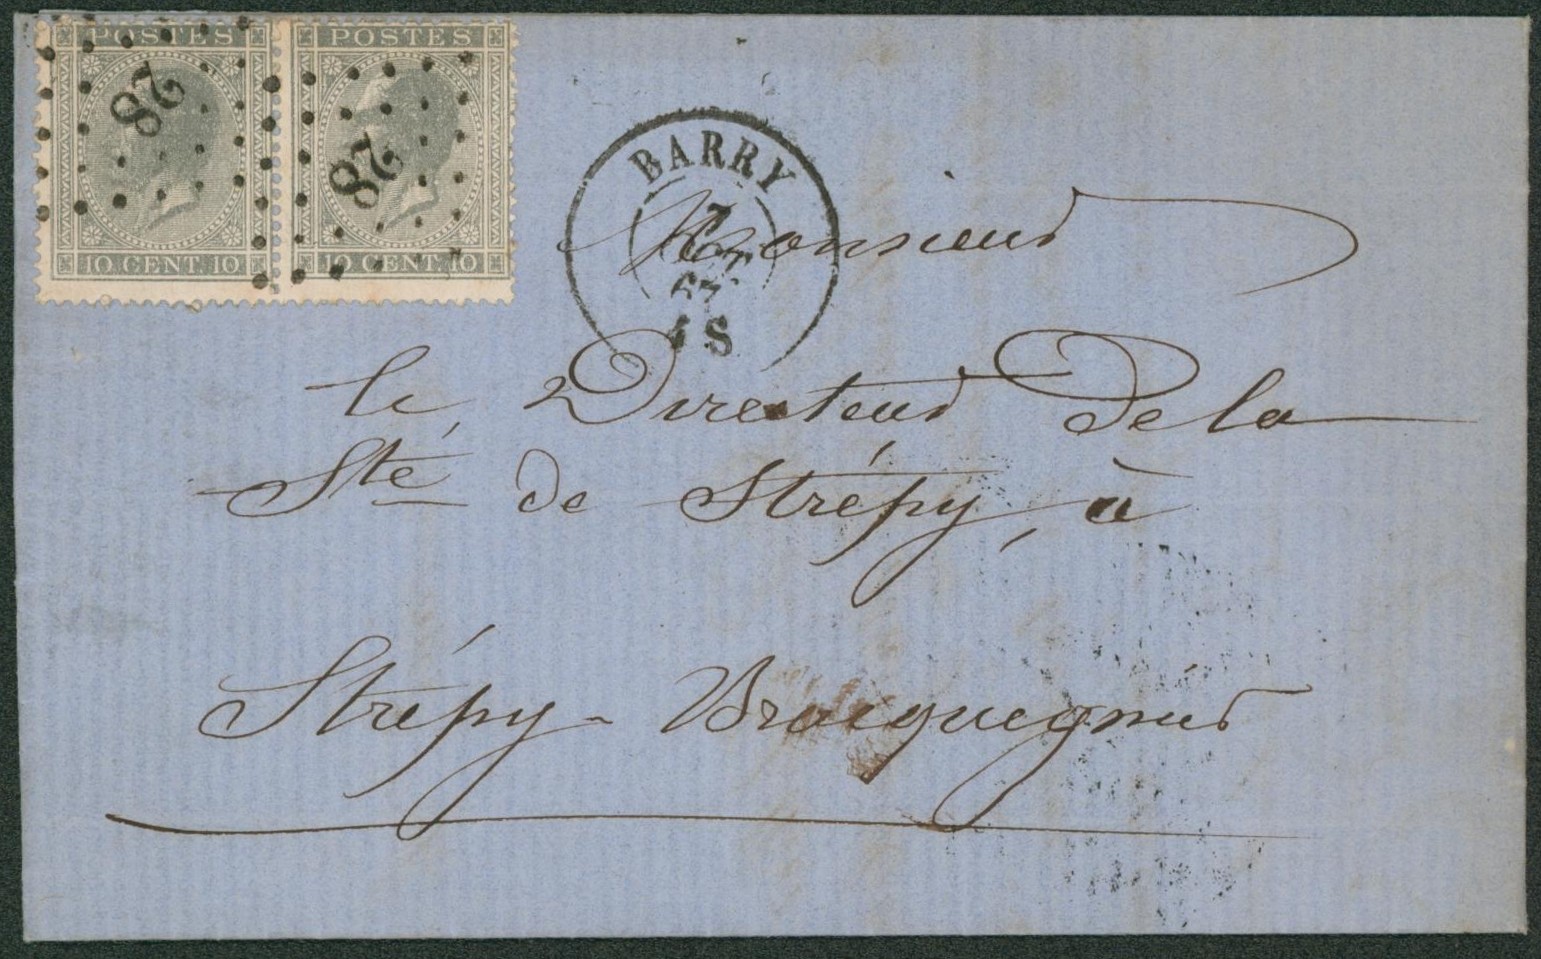 POSTES POSTES
28 28
10 CENT. 10 10 CENT. 10
BARRY
7
S
Monsieur
le Directeur de la
Sté de Strépy, à
Strépy-Bracquegnies